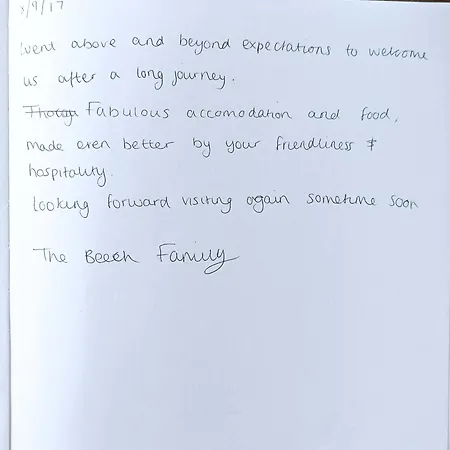 8/9/17
Went above and beyond expectations to welcome
us after a long journey.
Fabulous accomodation and food,
made even better by your friendliness &
hospitality.
looking forward visiting again sometime soon
The Beech Family